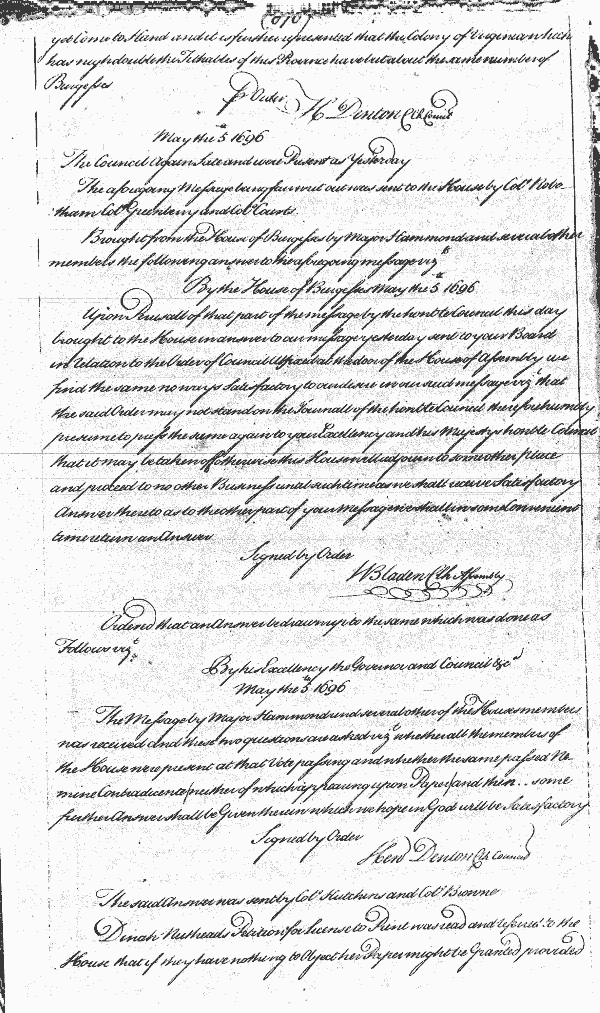 (810)
yet Come to Hand and it is further represented that the Colony of Virginia which
has nigh double the Tithables of this Province have but about the same number of
Burgesses
p Order H Denton Clk Council
May the 5th 1696
The Council again Sate and were Present as Yesterday
The aforegoing Message being fair writ out was sent to the House by Colo Robo
tham Colo Greenberry and Colo Courts
Brought from the House of Burgesses by Major Hammond and several other
members the following answer to the aforegoing message vizt
By the House of Burgesses May the 5th 1696
Upon Perusall of that part of the message by the honble Council this day
brought to the House in answer to our message yesterday sent to your Board
in relation to the Order of Council Affixed at the door of the House of Assembly we
find the same no ways Satisfactory to our desire in our said message vizt that
the said Order may not stand on the Journall of the honble Council therefore humbly
presume to press the same again to your Excellency and his Majestys honble Council
that it may be taken off otherwise this House will adjourn to some other place
and proceed to no other Business until such time as we shall receive Satisfactory
Answer thereto as to the other part of your Message we shall in some Convenient
time return an Answer
Signed by Order
WBladen Clk Assembly
Ordered that an Answer be drawn up to the same which was done as
Follows vizt
By his Excellency the Governor and Council &ca
May the 5th 1696
The Message by Major Hammond and several other of the Houses members
was received and these two questions are asked vizt whether all the members of
the House were present at that Vote passing and whether the same passed Ne
mine Contradicente (neither of which appearing upon Paper) and then .. some
further Answer shall be Given therein which we hope in God will be Satisfactory
Signed by Order
Hen Denton Clk Council
The said Answer was sent by Colo Hutchins and Colo Browne
Dinah Nutheads Petition for License to Print was read and referred to the
House that if they have nothing to Object her Paper might be Granted provided